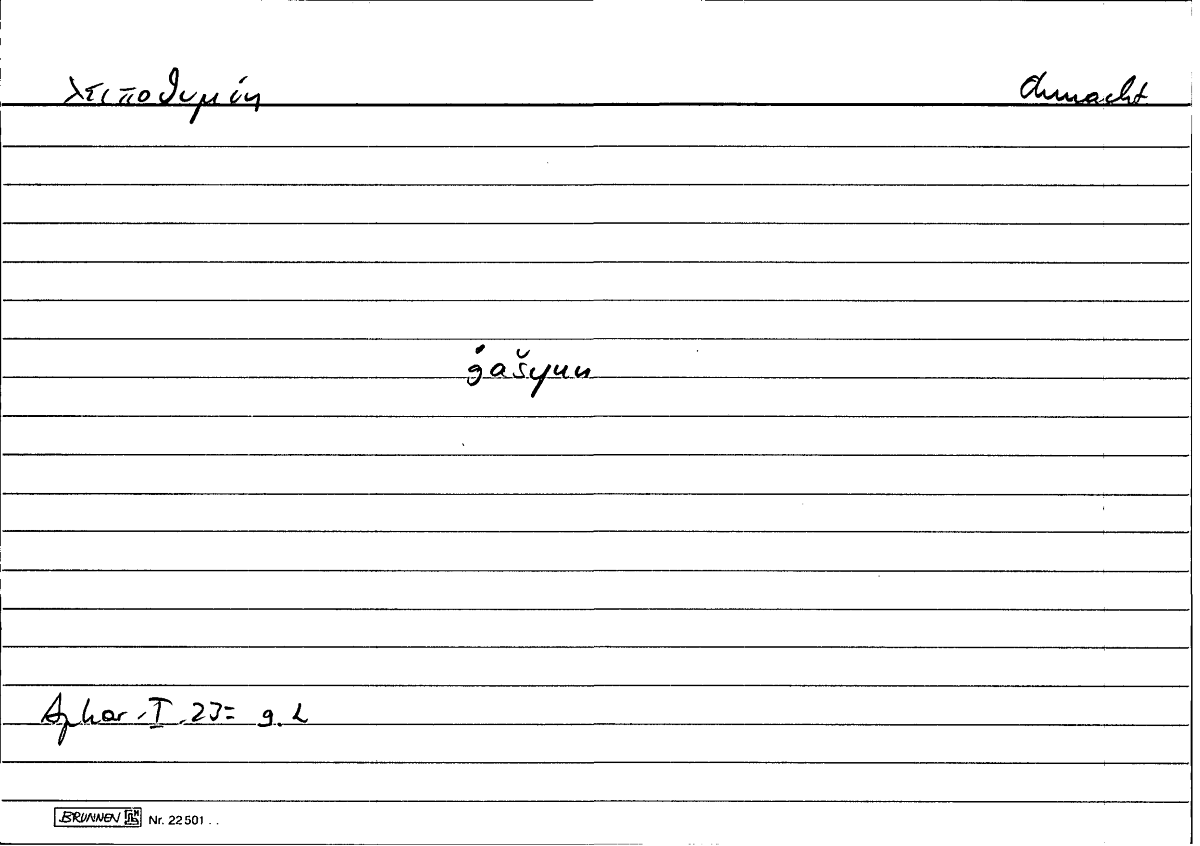 λειποθυμίη Ohnmacht
ġašyun
Aphor. I 23 = 9. 2
BRUNNEN Nr. 22 501 . .